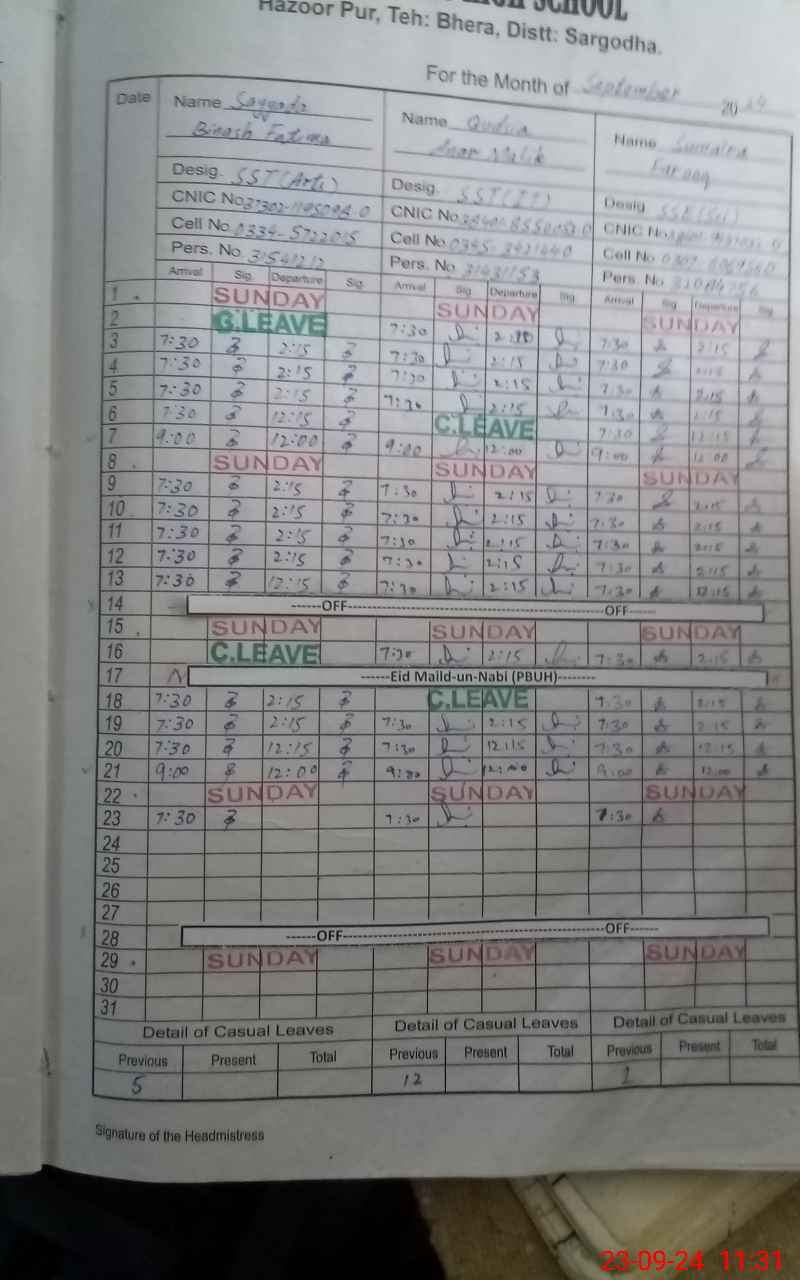 HIGH SCHOOL
Hazoor Pur, Teh: Bhera, Distt: Sargodha.
For the Month of September 2024
Date Name Sayyada Name Name Sumaira
Binash Fatima Malik Farooq
Desig. SST(Arts) Desig. SST(IT) Desig. SSE(Sci)
CNIC No CNIC No CNIC No
Cell No 0334-5722015 Cell No 0345-3421440 Cell No
Pers. No. 31541212 Pers. No. 31431153 Pers. No
Arrival Sig. Departure Sig. Arrival Sig Departure Sig Arrival Sig Departure Sig
1 SUNDAY SUNDAY SUNDAY
2 C.LEAVE 7:30 7:30 2:15
3 7:30 2:15 7:30 2:15 7:30 2:15
4 7:30 2:15 7:30 2:15 7:30 2:15
5 7:30 2:15 7:30 2:15 7:30 2:15
6 7:30 12:15 C.LEAVE 7:30 12:15
7 9:00 12:00 9:00 12:00 9:00 12:00
8 SUNDAY SUNDAY SUNDAY
9 7:30 2:15 7:30 2:15 7:30 2:15
10 7:30 2:15 7:30 2:15 7:30 2:15
11 7:30 2:15 7:30 2:15 7:30 2:15
12 7:30 2:15 7:30 2:15 7:30 2:15
13 7:30 12:15 7:30 2:15 7:30 12:15
14 ------OFF------ ------OFF------
15 SUNDAY SUNDAY SUNDAY
16 C.LEAVE 7:30 2:15 7:30 2:15
17 ------Eid Maild-un-Nabi (PBUH)--------
18 7:30 2:15 C.LEAVE 7:30 2:15
19 7:30 2:15 7:30 2:15 7:30 2:15
20 7:30 12:15 7:30 12:15 7:30 12:15
21 9:00 12:00 9:00 12:00 9:00 12:00
22 SUNDAY SUNDAY SUNDAY
23 7:30 7:30 7:30
24
25
26
27
28 ------OFF------ ------OFF------
29 SUNDAY SUNDAY SUNDAY
30
31
Detail of Casual Leaves Detail of Casual Leaves Detail of Casual Leaves
Previous Present Total Previous Present Total Previous Present Total
5 12 1
Signature of the Headmistress
23-09-24 11:31